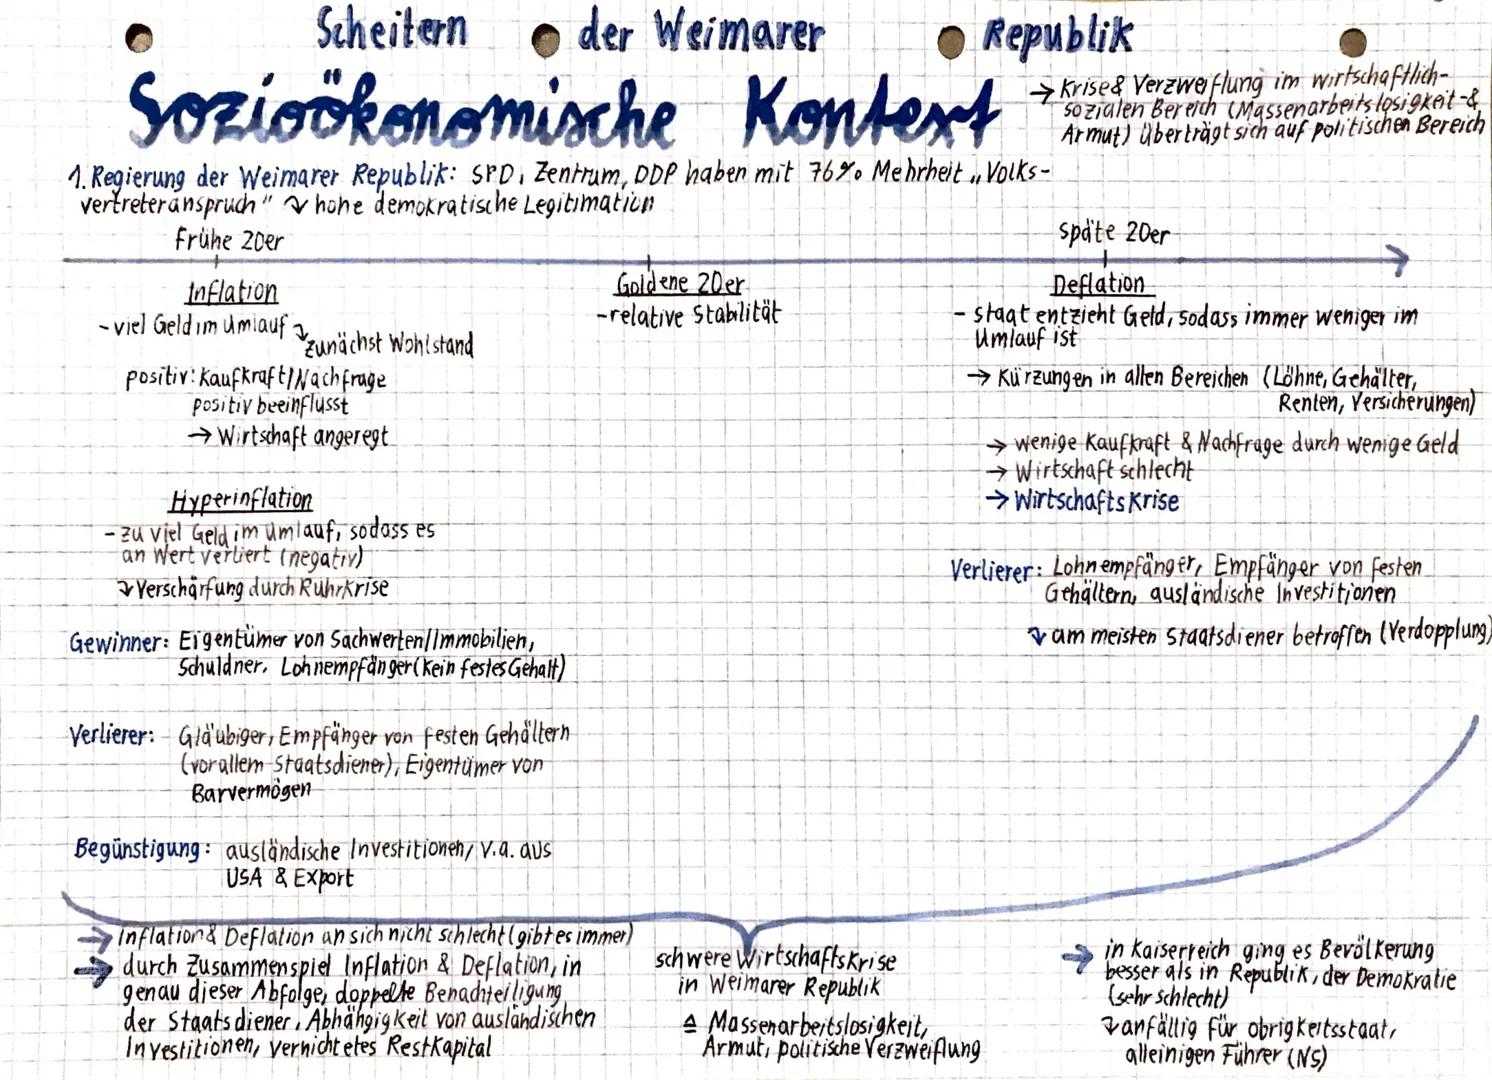 Scheitern der Weimarer Republik
Sozioökonomische Kontext
→ Krise & Verzweiflung im wirtschaftlich-
sozialen Bereich (Massenarbeitslosigkeit &
Armut) überträgt sich auf politischen Bereich
1. Regierung der Weimarer Republik: SPD, Zentrum, DDP haben mit 76% Mehrheit „Volks-
vertreteranspruch" ↴ hohe demokratische Legitimation
frühe 20er
Inflation
- viel Geld im Umlauf ↴
zunächst Wohlstand
positiv: Kaufkraft/Nachfrage
positiv beeinflusst
→ Wirtschaft angeregt
Hyperinflation
- zu viel Geld im Umlauf, sodass es
an Wert verliert (negativ)
↴ Verschärfung durch Ruhrkrise
Gewinner: Eigentümer von Sachwerten/Immobilien,
Schuldner, Lohnempfänger (kein festes Gehalt)
Verlierer: Gläubiger, Empfänger von festen Gehältern
(vor allem Staatsdiener), Eigentümer von
Barvermögen
Begünstigung: ausländische Investitionen, v.a. aus
USA & Export
Goldene 20er
- relative Stabilität
späte 20er
Deflation
- Staat entzieht Geld, sodass immer weniger im
Umlauf ist
→ Kürzungen in allen Bereichen (Löhne, Gehälter,
Renten, Versicherungen)
→ wenige Kaufkraft & Nachfrage durch wenige Geld
→ Wirtschaft schlecht
→ Wirtschaftskrise
Verlierer: Lohnempfänger, Empfänger von festen
Gehältern, ausländische Investitionen
↴ am meisten Staatsdiener betroffen (Verdopplung)
→ Inflation & Deflation an sich nicht schlecht (gibt es immer)
→ durch Zusammenspiel Inflation & Deflation, in
genau dieser Abfolge, doppelte Benachteiligung
der Staatsdiener, Abhängigkeit von ausländischen
Investitionen, vernichtetes Restkapital
schwere Wirtschaftskrise
in Weimarer Republik
≙ Massenarbeitslosigkeit,
Armut, politische Verzweiflung
→ in Kaiserreich ging es Bevölkerung
besser als in Republik, der Demokratie
(sehr schlecht)
↴ anfällig für Obrigkeitsstaat,
alleinigen Führer (NS)